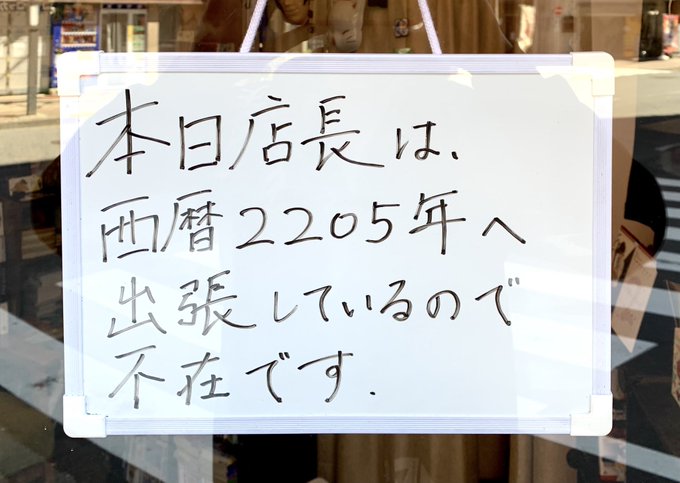 本日店長は、
西暦2205年へ
出張しているので
不在です.